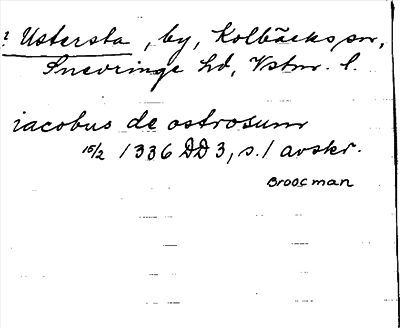 ? Ustersta, by, Kolbäcks sn,
Snevringe hd, Vstm. l.
iacobus de ostrosum
15/2 1336 DD 3, s. 1 avskr.
Broocman